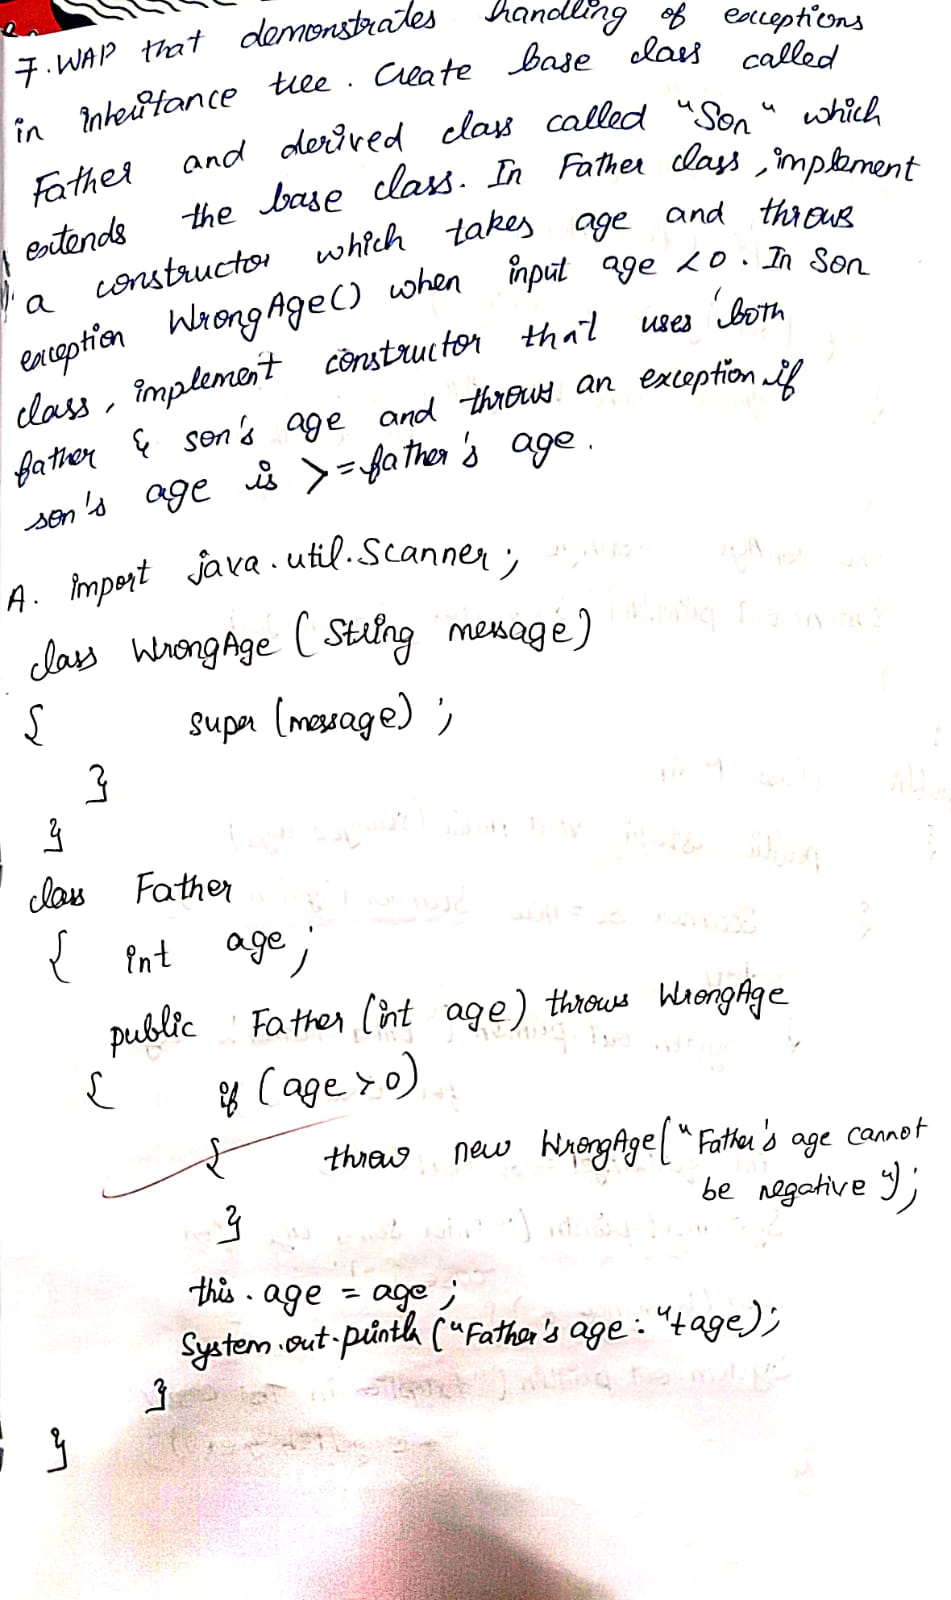 7. WAP that demonstrates handling of exceptions
in inheritance tree. Create base class called
Father and derived class called "Son" which
extends the base class. In Father class, implement
a constructor which takes age and throws
exception WrongAge() when input age <0. In Son
class, implement constructor that uses both
father & son's age and throws an exception if
son's age is >= father's age.
A. import java.util.Scanner;
class WrongAge (String message)
{ super (message);
}
}
class Father
{ int age;
public Father (int age) throws WrongAge
{ if (age > 0)
{ throw new WrongAge("Father's age cannot
be negative");
}
this.age = age;
System.out.println("Father's age: "+age);
}
}